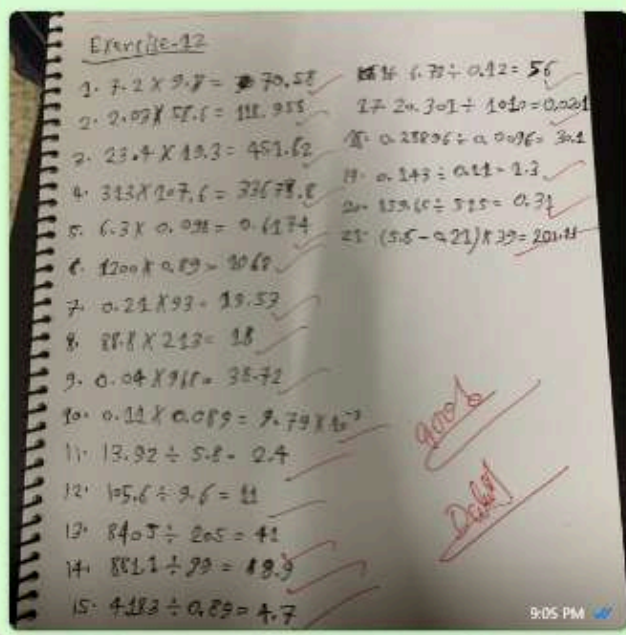 Exercise-12
1. 7.2 X 9.8 = 70.58
2. 2.03 X 58.6 = 118.958
3. 23.4 X 19.3 = 451.62
4. 313 X 107.6 = 33678.8
5. 6.3 X 0.098 = 0.6174
6. 1200 X 0.89 = 1068
7. 0.21 X 93 = 19.53
8. X 213 = 18
9. 0.04 X 968 = 38.72
10. 0.11 X 0.089 = 9.79 X 10⁻³
11. 13.92 ÷ 5.8 = 2.4
12. 105.6 ÷ 9.6 = 11
13. 8405 ÷ 205 = 41
14. 881.1 ÷ 99 = 8.9
15. 4183 ÷ 0.89 = 4.7
16 6.72 ÷ 0.12 = 56
17 20.301 ÷ 1010 = 0.0201
18. 0.28896 ÷ 0.0096 = 30.1
19. 0.143 ÷ 0.11 = 1.3
20. 159.65 ÷ 515 = 0.31
21. (5.6 - 0.21) X 39 = 201.11
100%
9:05 PM